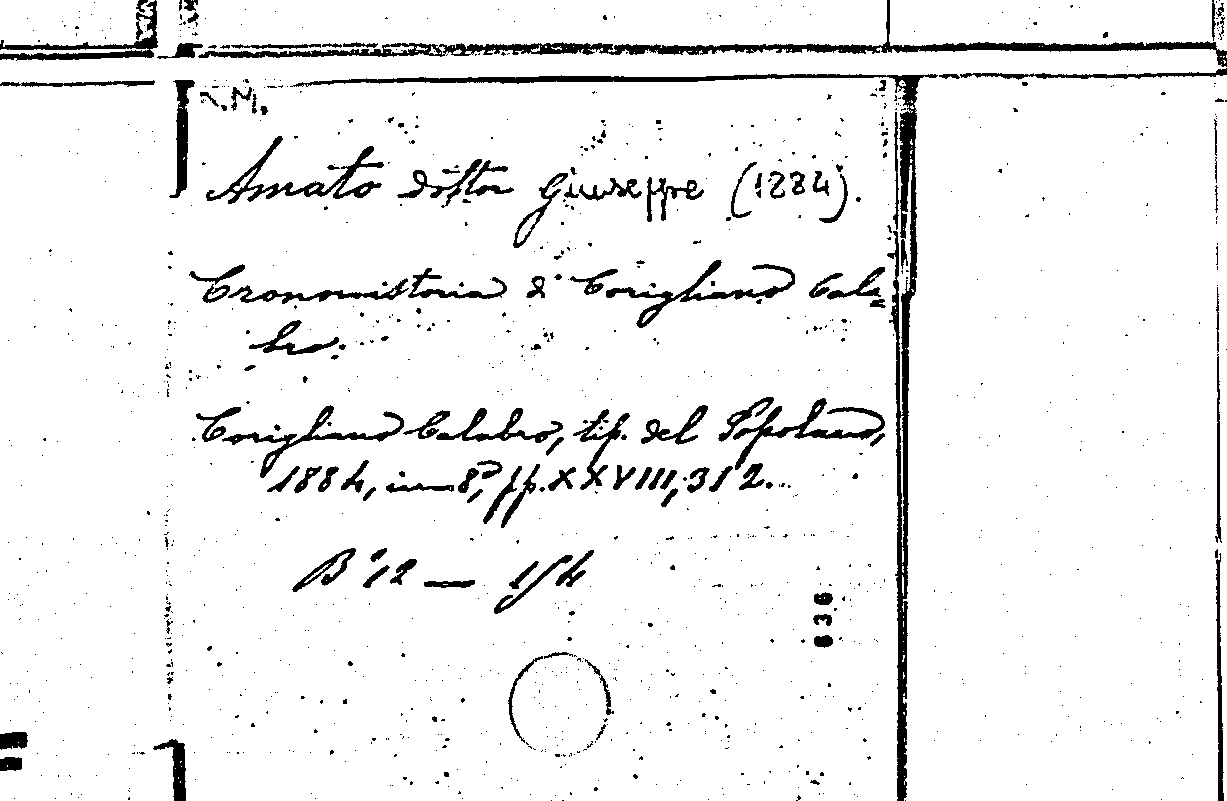 R.M.
Amato dottor Giuseppe (1884).
Cronoistoria di Corigliano Cala=
bro.
Corigliano Calabro, tip. del Popolano,
1884, in-8°, pp. XXVIII, 312.
B. 12 — 154
636